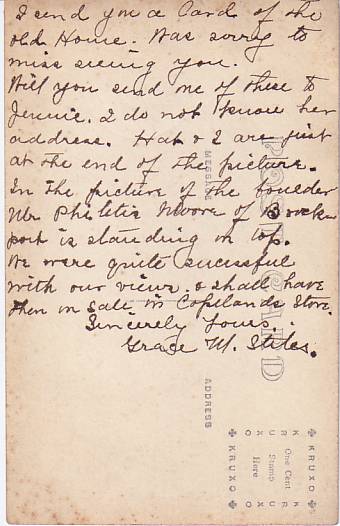 I send you a Card of the
old Home. Was sorry to
miss seeing you.
Will you send one of these to
Jennie. I do not know her
address. Hat & I are just
at the end of the picture.
In the picture of the boulder
Mr Philetis Moore of Brock
port is standing on top.
We were quite sucessful
with our views. & shall have
them on sale in Copelands Store.
Sincerely Yours.
Grace M. Stiles.
POST CARD
MESSAGE
ADDRESS
KRUXO
One Cent
Stamp
Here
KRUXO
KRUXO
KRUXO